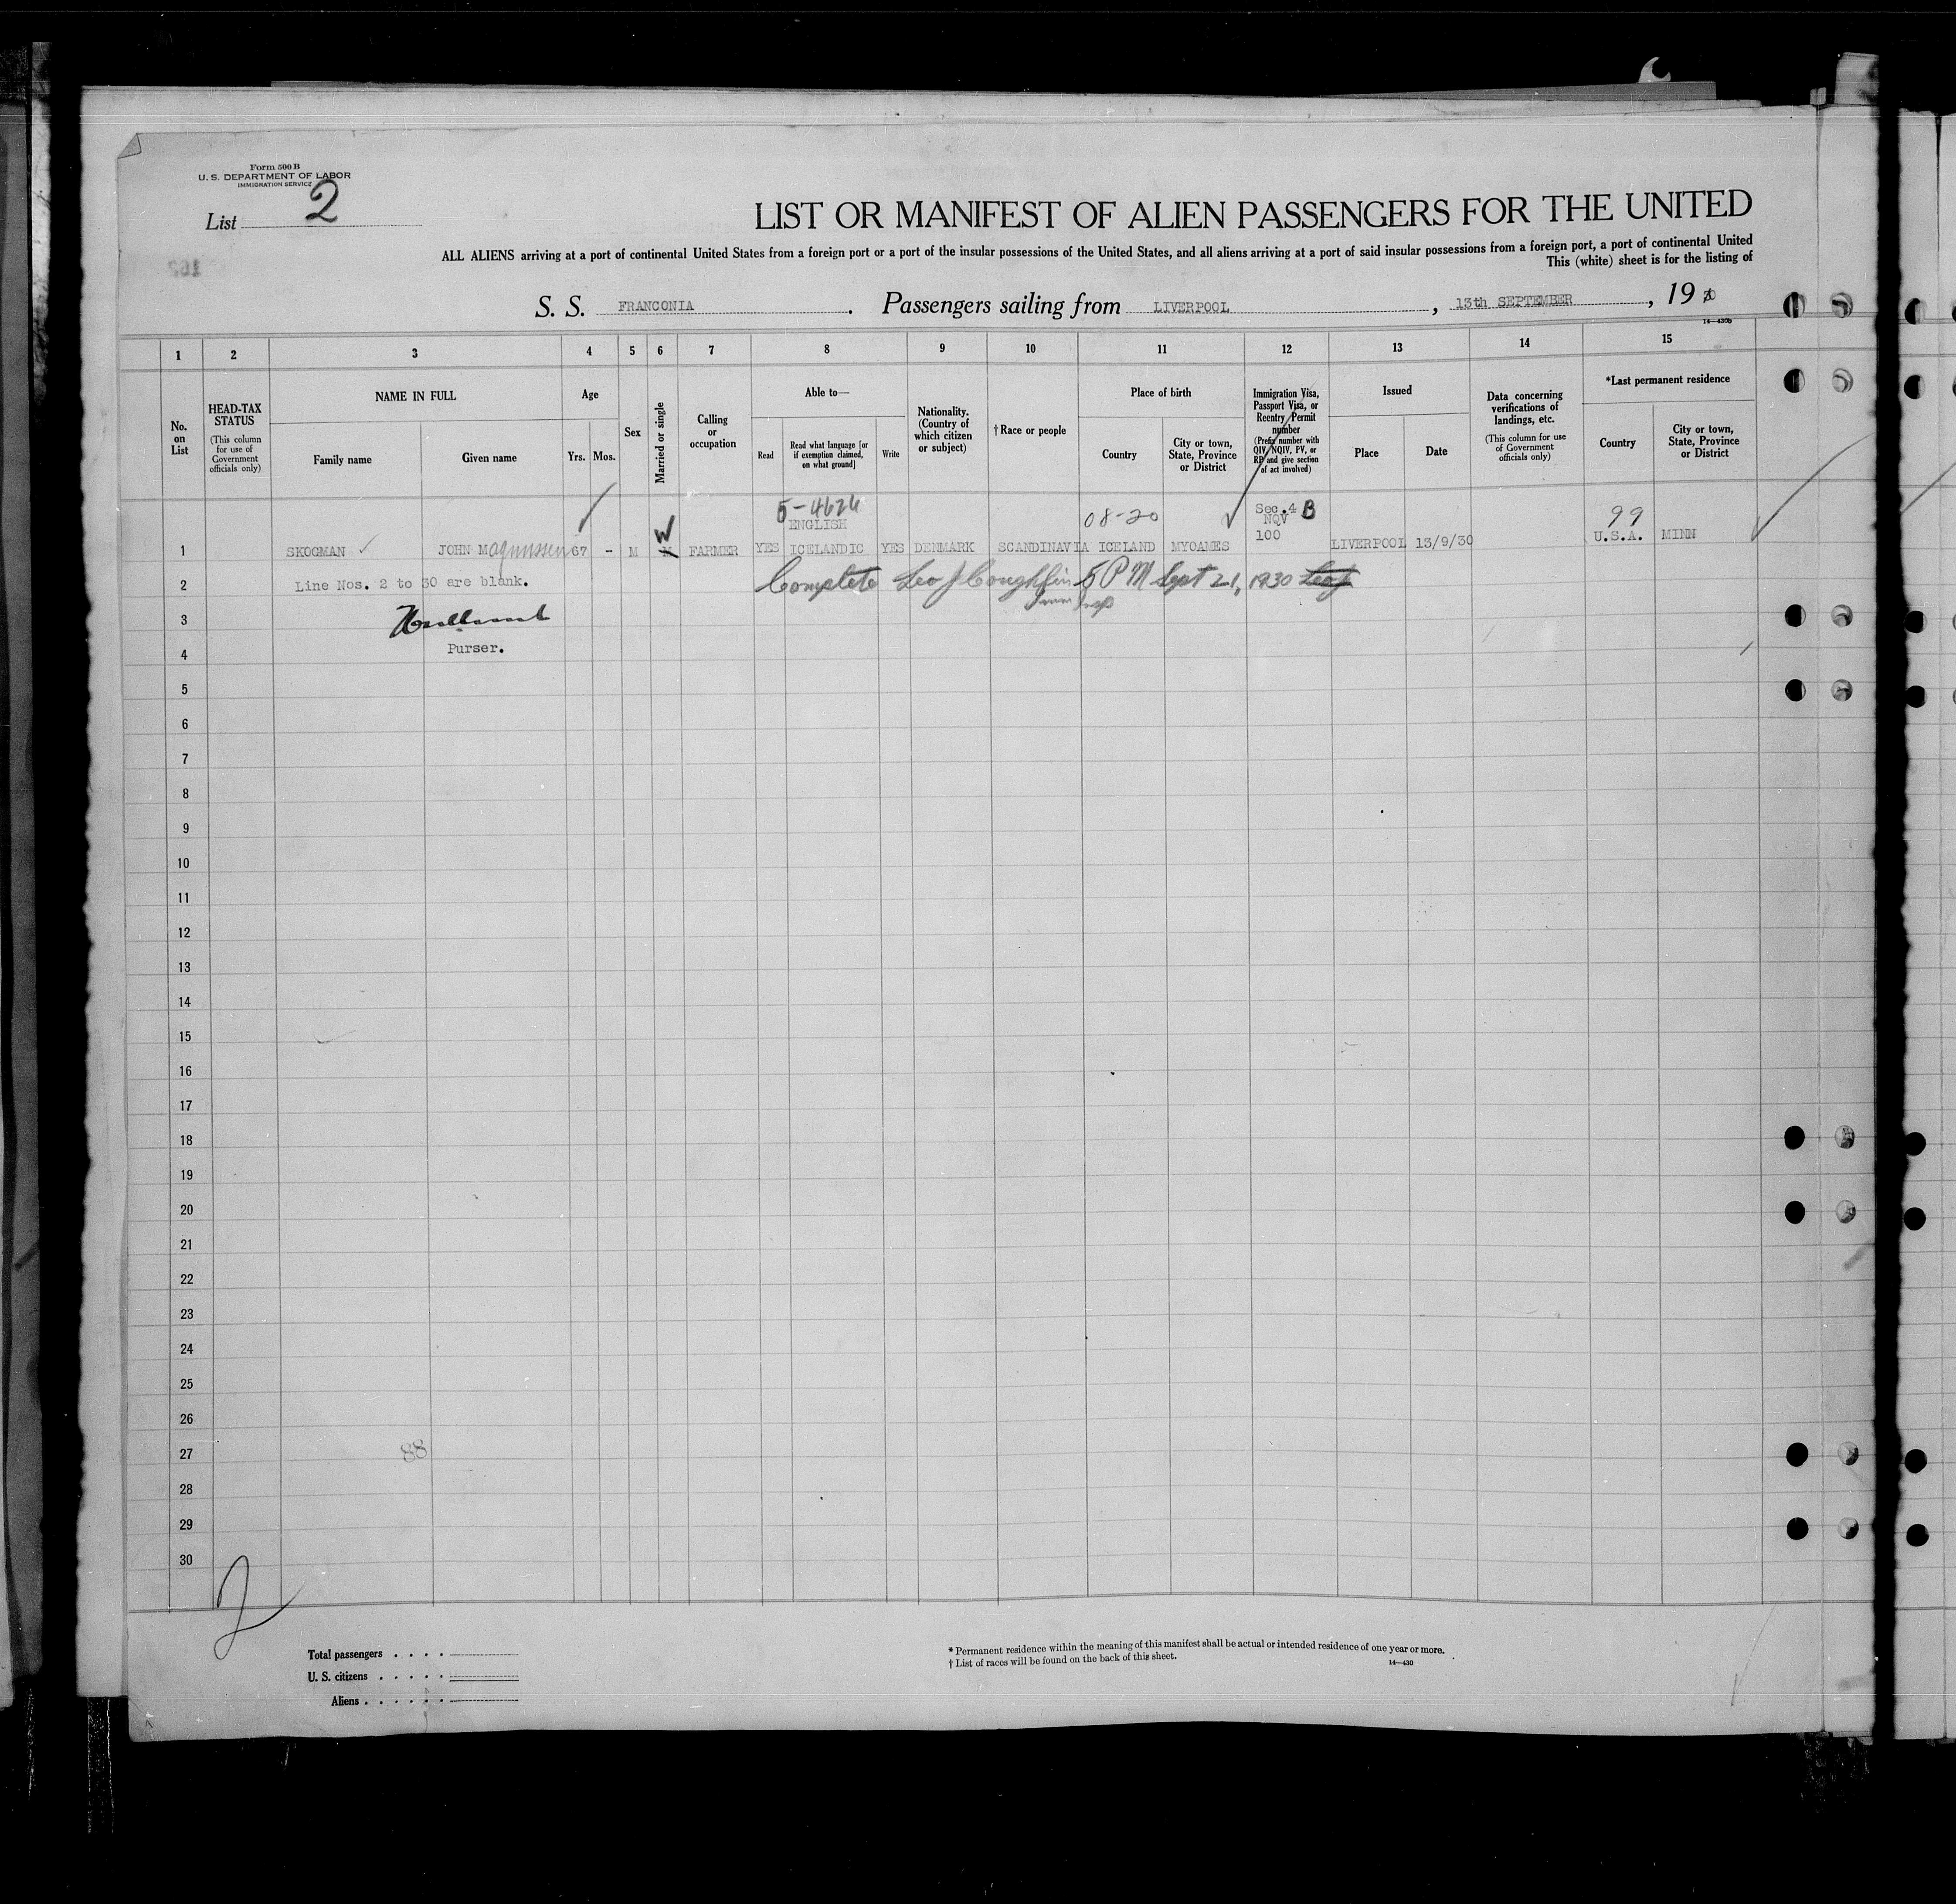 Form 500 B
U. S. DEPARTMENT OF LABOR
IMMIGRATION SERVICE
List 2
LIST OR MANIFEST OF ALIEN PASSENGERS FOR THE UNITED
ALL ALIENS arriving at a port of continental United States from a foreign port or a port of the insular possessions of the United States, and all aliens arriving at a port of said insular possessions from a foreign port, a port of continental United
This (white) sheet is for the listing of
S. S. FRANCONIA. Passengers sailing from LIVERPOOL, 13th SEPTEMBER, 19
14—430b
1 2 3 4 5 6 7 8 9 10 11 12 13 14 15
No. on List
HEAD-TAX STATUS
(This column for use of Government officials only)
NAME IN FULL
Family name
Given name
Age
Yrs.
Mos.
Sex
Married or single
Calling or occupation
Able to—
Read
Read what language [or if exemption claimed, on what ground]
Write
Nationality. (Country of which citizen or subject)
†Race or people
Place of birth
Country
City or town, State, Province or District
Immigration Visa, Passport Visa, or Reentry Permit number
(Prefix number with QIV, NQIV, PV, or RP and give section of act involved)
Issued
Place
Date
Data concerning verifications of landings, etc.
(This column for use of Government officials only)
*Last permanent residence
Country
City or town, State, Province or District
5-4626
ENGLISH
08-20
Sec.4 B
NQV
100
99
W
1 SKOGMAN JOHN Magnussen 67 - M FARMER YES ICELANDIC YES DENMARK SCANDINAVIA ICELAND MYOAMES LIVERPOOL 13/9/30 U.S.A. MINN
2 Line Nos. 2 to 30 are blank. Complete Leo J Coughlin 5 PM Sept 21, 1930
Imm Insp
3
4 Purser.
5
6
7
8
9
10
11
12
13
14
15
16
17
18
19
20
21
22
23
24
25
26
27 88
28
29
30
2
Total passengers
U. S. citizens
Aliens
* Permanent residence within the meaning of this manifest shall be actual or intended residence of one year or more.
† List of races will be found on the back of this sheet.
14—430